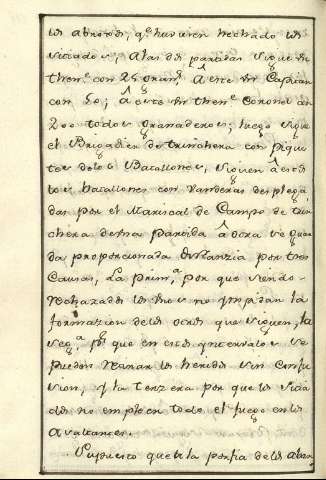 los abrojos, qe huvieren hechado los
sitiados, a las dos paradas sigue un
thene con 25 granads, a este un Capitan
con 50; a este un thene Coronel con
200 todos Granaderos; luego sigue
el Brigadier de trinchera con pique
tes de los Batallones, siguen a esto
los batallones con vanderas desplega
das por el Mariscal de Campo de trin
chera de una parada à otra se guar
da proporcionada distanzia por tres
Causas, La prima por que siendo
rechazados los unos no ympidan la
formazion de los otros que siguen; la
sega pr que en esos yntervalos se
puedan retirar los heridos sin confu
sion, y la terzera por que los sitia
dos no empleen todo el fuego en los
abanzes.
Supuesto que la porfia de los